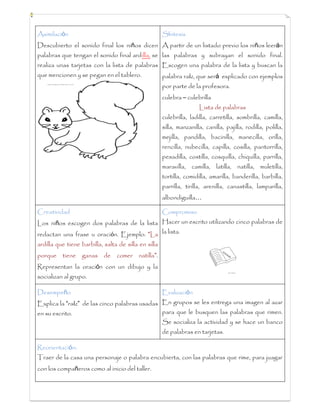 Asimilación
Descubierto el sonido final los niños dicen
palabras que tengan el sonido final ardilla, se
realiza unas tarjetas con la lista de palabras
que mencionen y se pegan en el tablero.
Síntesis
A partir de un listado previo los niños leerán
las palabras y subrayan el sonido final.
Escogen una palabra de la lista y buscan la
palabra raíz, que será explicado con ejemplos
por parte de la profesora.
culebra – culebrilla
Lista de palabras
culebrilla, ladilla, carretilla, sombrilla, camilla,
silla, manzanilla, canilla, papilla, rodilla, polilla,
mejilla, pandilla, bacinilla, manecilla, orilla,
rencilla, nubecilla, capilla, casilla, pantorrilla,
pesadilla, costilla, cosquilla, chiquilla, parrilla,
maravilla, camilla, latilla, natilla, muletilla,
tortilla, comidilla, amarilla, banderilla, barbilla,
parrilla, tirilla, arenilla, canastilla, lamparilla,
albondiguilla…
Creatividad
Los niños escogen dos palabras de la lista
redactan una frase u oración. Ejemplo: “La
ardilla que tiene barbilla, salta de silla en silla
porque tiene ganas de comer natilla”.
Representan la oración con un dibujo y la
socializan al grupo.
Compromiso
Hacer un escrito utilizando cinco palabras de
la lista.
Desempeño
Explica la “raíz” de las cinco palabras usadas
en su escrito.
Evaluación
En grupos se les entrega una imagen al azar
para que le busquen las palabras que rimen.
Se socializa la actividad y se hace un banco
de palabras en tarjetas.
Reorientación:
Traer de la casa una personaje o palabra encubierta, con las palabras que rime, para jugar
con los compañeros como al inicio del taller.